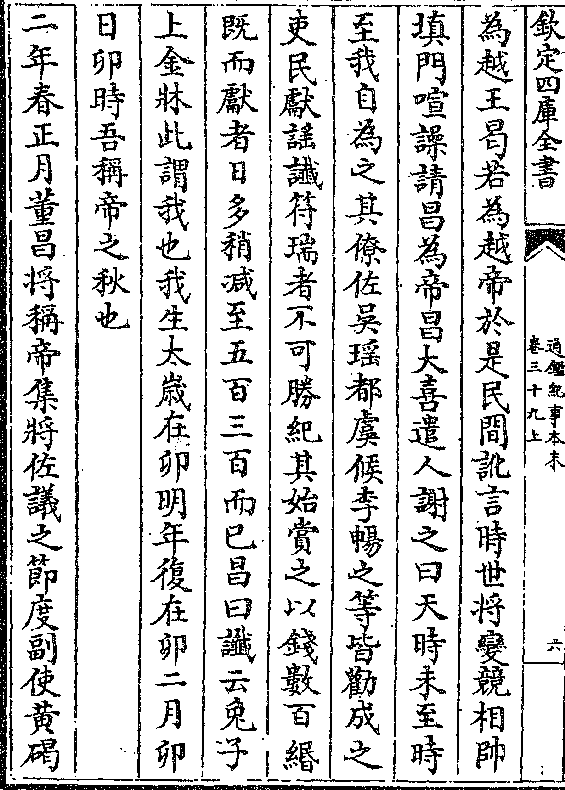 欽定四庫全書
通鑑紀事本末
卷三十九上
六
為越王曷若為越帝於是民間訛言時世將變競相帥
填門喧譟請昌為帝昌大喜遣人謝之曰天時未至時
至我自為之其僚佐吳瑶都虞候李暢之等皆勸成之
吏民獻謡讖符瑞者不可勝紀其始賞之以錢數百緡
既而獻者日多稍減至五百三百而已昌曰讖云兔子
上金牀此謂我也我生太歲在卯明年復在卯二月卯
日卯時吾稱帝之秋也
二年春正月董昌將稱帝集將佐議之節度副使黃碣